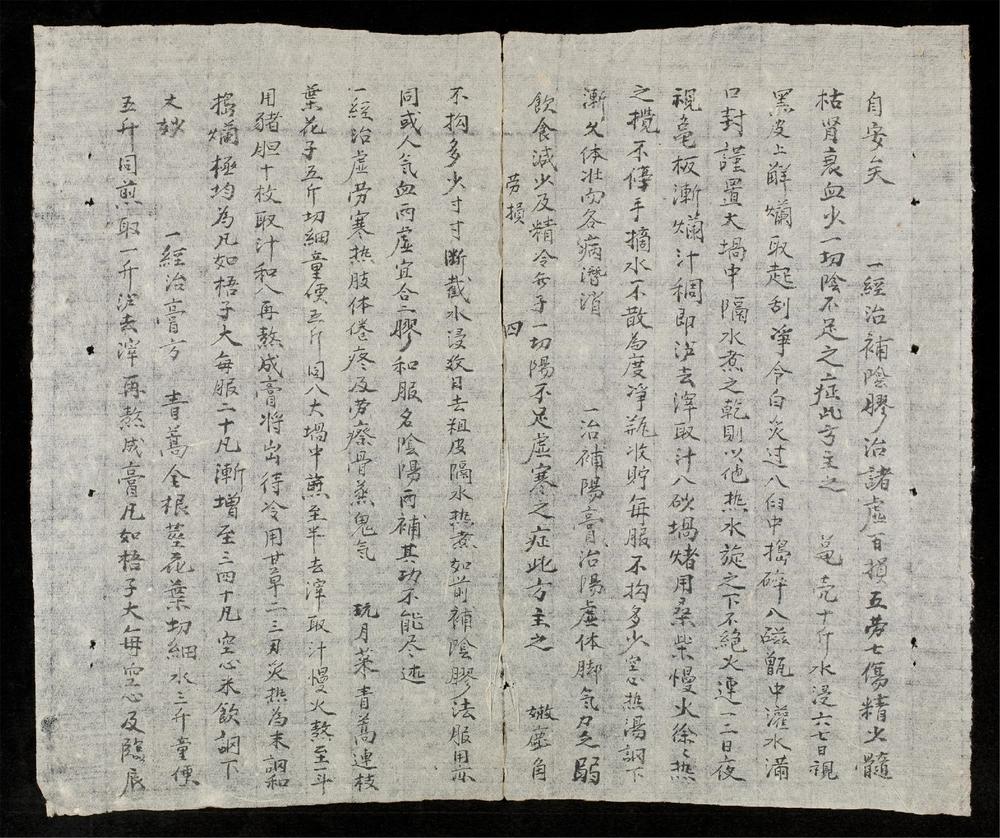 自安矣 一經治補陰膠治諸虛百損五劳七傷精少髓
枯肾衰血少一切陰不足之症此方主之 龟壳十斤水浸六七日視
黑皮上鮮爛取起刮凈令白炙过入臼中搗碎入磁甑中灌水滿
口封謹置大堝中隔水煮之乾則以他热水旋之下不絕火連一二日夜
視亀板漸爛汁稠即沪去滓取汁入砂堝煮用桑柴慢火徐徐热
之攬不停手摘水不散為度凈瓶收貯每服不拘多少空心热湯調下
漸久体壮而各病潛消 一治補陽膏治陽虚体脚氣力乏弱
飲食減少及精冷無子一切陽不足虛寒之症此方主之 嫩鹿角
劳損 四
不拘多少寸寸断截水浸数日去粗皮隔水热煮如前補陰膠法服用亦
同或人氣血両虛宜合二膠和服名陰陽两補其功不能尽述
一經治虛劳寒热肢体倦疼及劳瘵骨蒸鬼氣 玩月菜青蒿連枝
葉花子五斤切細童便五斤同入大堝中煎至半去滓取汁慢火熬至一斗
用豬胆十枚取汁和入再熬成膏將出待冷用甘草二三刃炙热為末調和
搗爛極均為凡如梧子大每服二十凡漸增至三四十凡空心米飲調下
大妙 一經治膏方 青蒿全根莖花葉切細水三升童便
五升同煎取一升沪去滓再熬成膏凡如梧子大每空心及臨辰